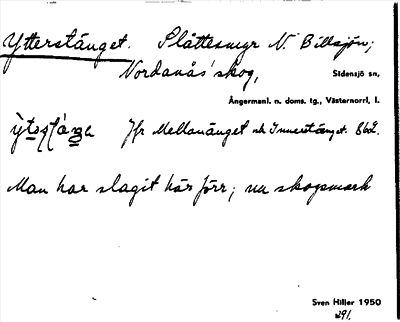 Ytterstänget. Slåttesmyr N. Billsjön;
Nordanås' skog,
Sidensjö sn,
Ångermanl. n. doms. tg., Västernorrl. l.
Jfr Mellanänget och Innerstänget. 862.
Man har slagit här förr; nu skogsmark
Sven Hiller 1950
291.